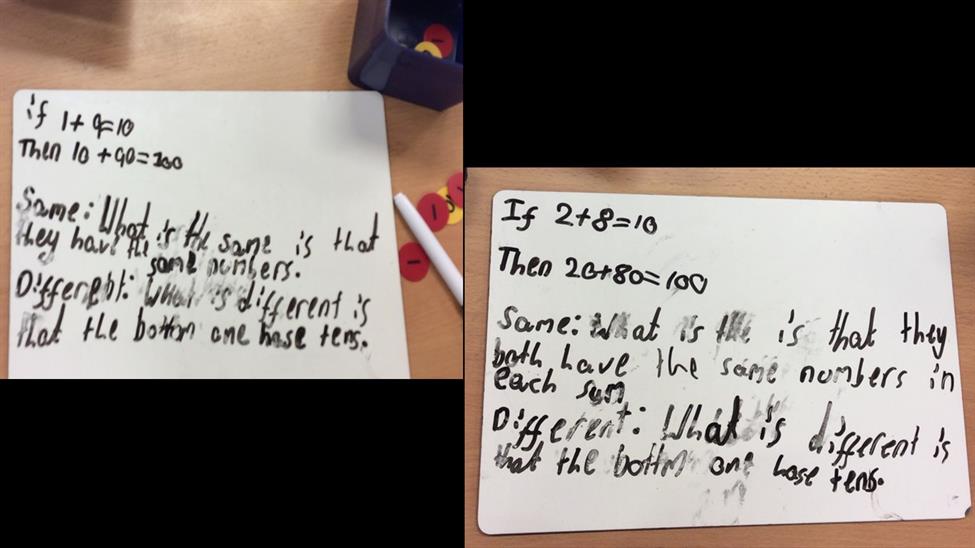 if 1+9=10
Then 10+90=100
Same: What is the same is that
they have the same numbers.
Different: What is different is
that the bottom one hase tens.
If 2+8=10
Then 20+80=100
Same: What is the is that they
both have the same numbers in
each sum
Different: What is different is
that the bottom one hase tens.